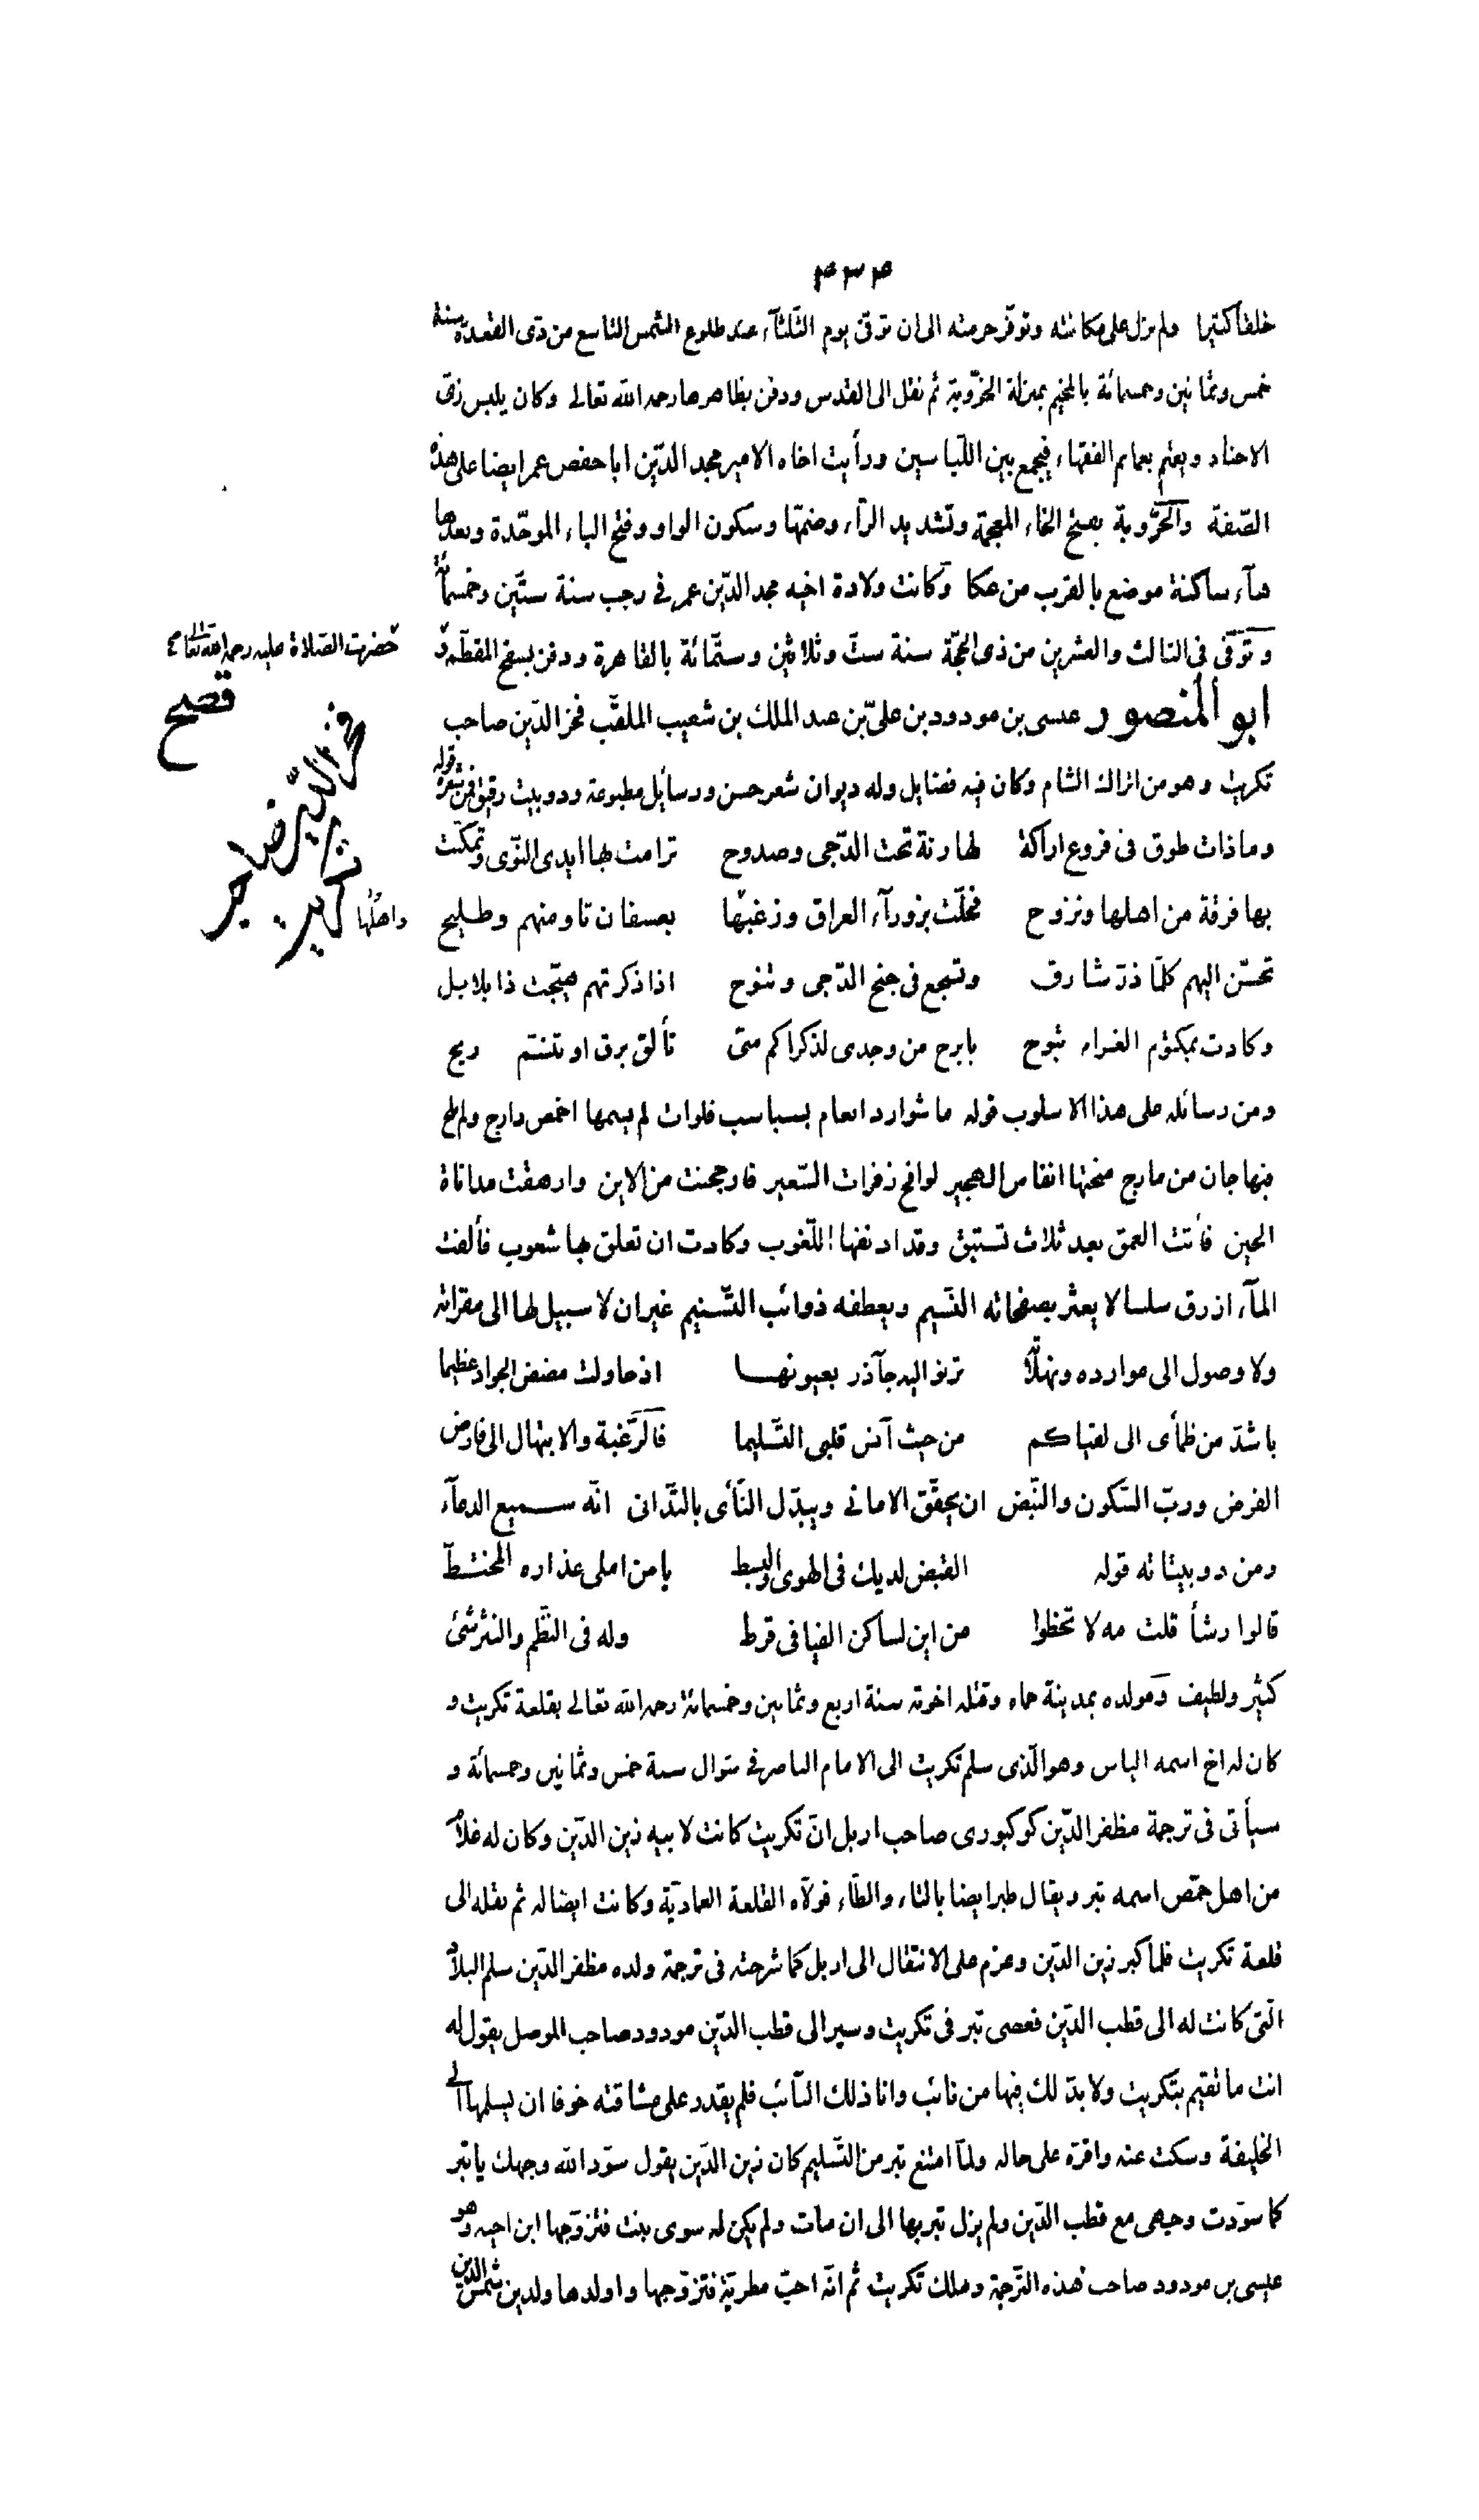 خلقا كثيرا ولم يزل على مكانته وتوفّر حرمته الى ان توفّى يوم الثلثآء عند طلوع الشمس التاسع من ذى القعدة سنة
خمس وثمانين وخمسمائة بالمخيم بمنزلة الخرّوبة ثم نقل الى القدس ودفن بظاهرها رحمه الله تعالى وكان يلبس زىّ
الاجناد ويعتم بعمايم الفقهاء فيجمع بين اللّباسين ورأيت اخاه الامير مجد الدّين ابا حفص عمر ايضا على هذه
الصّفة والخرّوبة بفتح الخاء المعجمة وتشديد الرّاء وضمّها وسكون الواو وفتح الباء الموحّدة وبعدها
هآء ساكنة موضع بالقرب من عكا وكانت ولادة اخيه مجد الدّين عمر فى رجب سنة ستّين وخمسمائة
وتوّفى فى الثالث والعشرين من ذى الحجّة سنة ستّ وثلاثين وستّمائة بالقاهرة ودفن بسفح المقطّم و
حضرت الصّلاة عليه رحمه الله تعالى
ابو المنصور عيسى بن مودود بن علىّ بن عبد الملك بن شعيب الملقّب فخر الدّين صاحب
تكريت وهو من اتراك الشام وكان فيه فضايل وله ديوان شعر حسن ورسايل مطبوعة ودوبيت رقيق فمن شعره قوله
وما ذات طوق فى فروع اراكة لها رنة تحت الدّجى وصدوح ترامت بها ايدى النّوى وتمكّنت
بها فرقة من اهلها ونزوح فحلّت بزورآء العراق وزغبها بعسفان ثاو منهم وطليح
تحنّ اليهم كلّما ذرّ شارق وتسجع فى جنح الدّجى وتنوح اذا ذكرتهم هيّجت ذا بلابل
وكادت بمكتوم الغرام تبوح بابرح من وجدى لذكراكم متى تألق برق او تنسّم ريح
ومن رسائله على هذا الاسلوب قوله ما شوارد انعام بسباسب فلوات لم يسمها اخمص دارج ولم يلج
فيها جان من مارج منحتها انفاس الهجير لوافح زفرات السّعير فارجحنت من الاين وارهقت مداناة
الحين فأتت العمق بعد ثلاث تستبق وقد ادنفها اللّغوب وكادت ان تعلق بها شعوب فألفت
المآء ازرق سلسالا يعثر بصفحاته النّسيم ويعطفه ذوائب التّسنيم غير ان لا سبيل لها الى مقراته
ولا وصول الى موارده ونهلاته ترنو اليه جآذر بعيونها اذ حاولت مضض الجواد عظيما
باشدّ من ظمأى الى لقياكم من حيث آنس قلبى التّسليما فالرّغبة والابتهال الى فارض
الفرض وربّ السّكون والنّبض ان يحقّق الامانى ويبدّل النّأى بالتّدانى انّه سميع الدعآء
ومن دوبيتاته قوله القبض لديك فى الهوى والبسط يا من املى عذاره المختطّ
قالوا رشأ قلت مه لا تخطوا من اين لساكن الفيافى قرط وله فى النّظم والنثر شئ
كثير ولطيف ومولده بمدينة حماه وقتله اخوته سنة اربع وثمانين وخمسمائة رحمه الله تعالى بقلعة تكريت و
كان له اخ اسمه الياس وهو الّذى سلم تكريت الى الامام الناصر فى شوال سنة خمس وثمانين وخمسمائة و
سيأتى فى ترجمة مظفر الدّين كوكبورى صاحب اربل انّ تكريت كانت لابيه زين الدّين وكان له غلام
من اهل حمّص اسمه تبر ويقال طبر ايضا بالتاء والطّاء فولاّه القلعة العماديّة وكانت ايضا له ثم نقله الى
قلعة تكريت فلما كبر زين الدّين وعزم على الانتقال الى اربل كما شرحته فى ترجمة ولده مظفر الدّين سلم البلاد
الّتى كانت له الى قطب الدّين فعصى تبر فى تكريت وسير الى قطب الدّين مودود صاحب الموصل يقول له
انت ما تقيم بتكريت ولا بدّ لك فيها من نائب وانا ذلك النّائب فلم يقدر على مشاققته خوفا ان يسلمها الى
الخليفة وسكت عنه واقرّه على حاله ولمّا امتنع تبر من التّسليم كان زين الدّين يقول سوّد الله وجهك يا تبر
كما سوّدت وجهى مع قطب الدّين ولم يزل تبر بها الى ان مات ولم يكن له سوى بنت فتزوّجها ابن اخيه وهو
عيسى بن مودود صاحب هذه التّرجمة وملك تكريت ثم انّه احبّ مطربة فتزوّجها واولدها ولدين شمس الدين